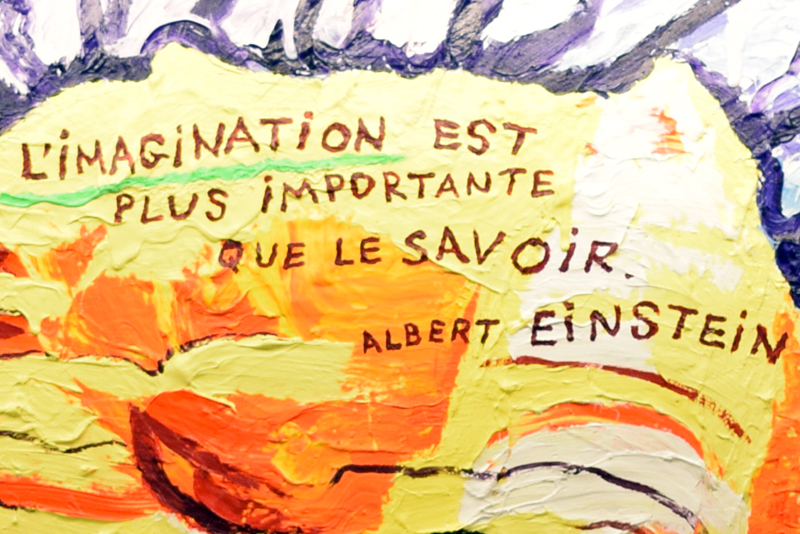 L'iMAGiNATiON EST
PLUS iMPORTANTE
QUE LE SAVOiR.
ALBERT EiNSTEiN